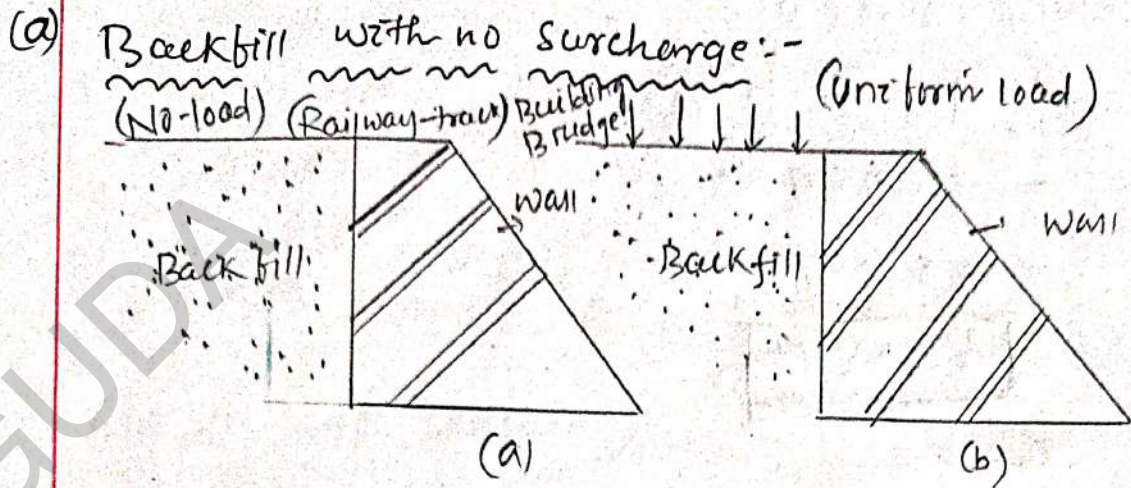 (a) Backfill with no surcharge:-
(No-load) (Railway-track) Building (Uniform load)
Bridge
wall
wall
Backfill
Backfill
(a)
(b)
GUDA